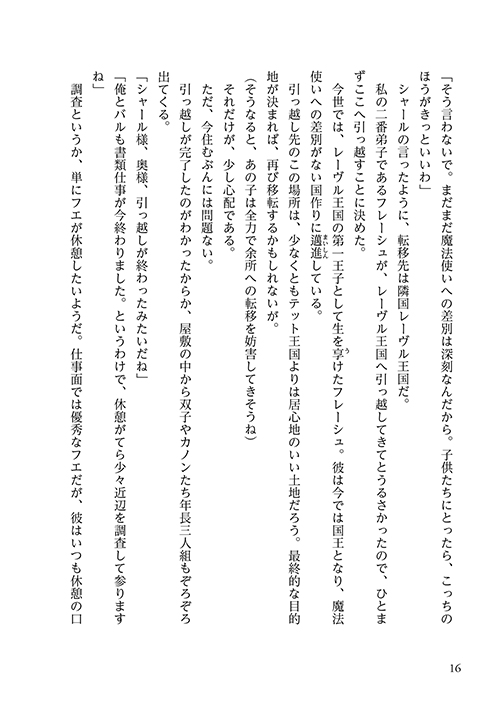 「そう言わないで。まだまだ魔法使いへの差別は深刻なんだから。子供たちにとったら、こっちの
ほうがきっといいわ」
シャールの言ったように、転移先は隣国レーヴル王国だ。
私の二番弟子であるフレーシュが、レーヴル王国へ引っ越してきてとうるさかったので、ひとま
ずここへ引っ越すことに決めた。
今世では、レーヴル王国の第一王子として生を享けたフレーシュ。彼は今では国王となり、魔法
使いへの差別がない国作りに邁進している。
引っ越し先のこの場所は、少なくともテット王国よりは居心地のいい土地だろう。最終的な目的
地が決まれば、再び移転するかもしれないが。
(そうなると、あの子は全力で余所への転移を妨害してきそうね)
それだけが、少し心配である。
ただ、今住むぶんには問題ない。
引っ越しが完了したのがわかったからか、屋敷の中から双子やカノンたち年長三人組もぞろぞろ
出てくる。
「シャール様、奥様、引っ越しが終わったみたいだね」
「俺とバルも書類仕事が今終わりました。というわけで、休憩がてら少々近辺を調査して参ります
ね」
調査というか、単にフエが休憩したいようだ。仕事面では優秀なフエだが、彼はいつも休憩の口
まいしん
う
16